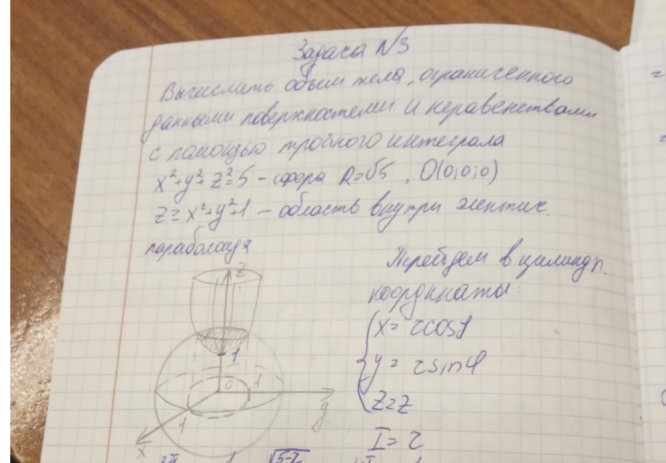 Задача N3
Вычислить объем тела, ограниченного
данными поверхностями и неравенствами
с помощью тройного интеграла
x²+y²+z²=5 - сфера R=√5, O(0;0;0)
z≥x²+y²+1 - область внутри элептич.
параболоида
Перейдем в цилиндр.
координаты:
x= rcosφ
y= rsinφ
z=z
I= r
z
1
0
1
1
y
x